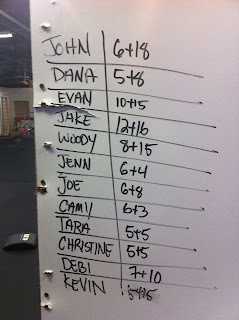 JOHN 6+18
DANA 5+8
EVAN 10+15
JAKE 12+16
WOODY 8+15
JENN 6+4
JOE 6+8
CAMY 6+3
TARA 5+5
CHRISTINE 5+5
DEBI 7+10
KEVIN